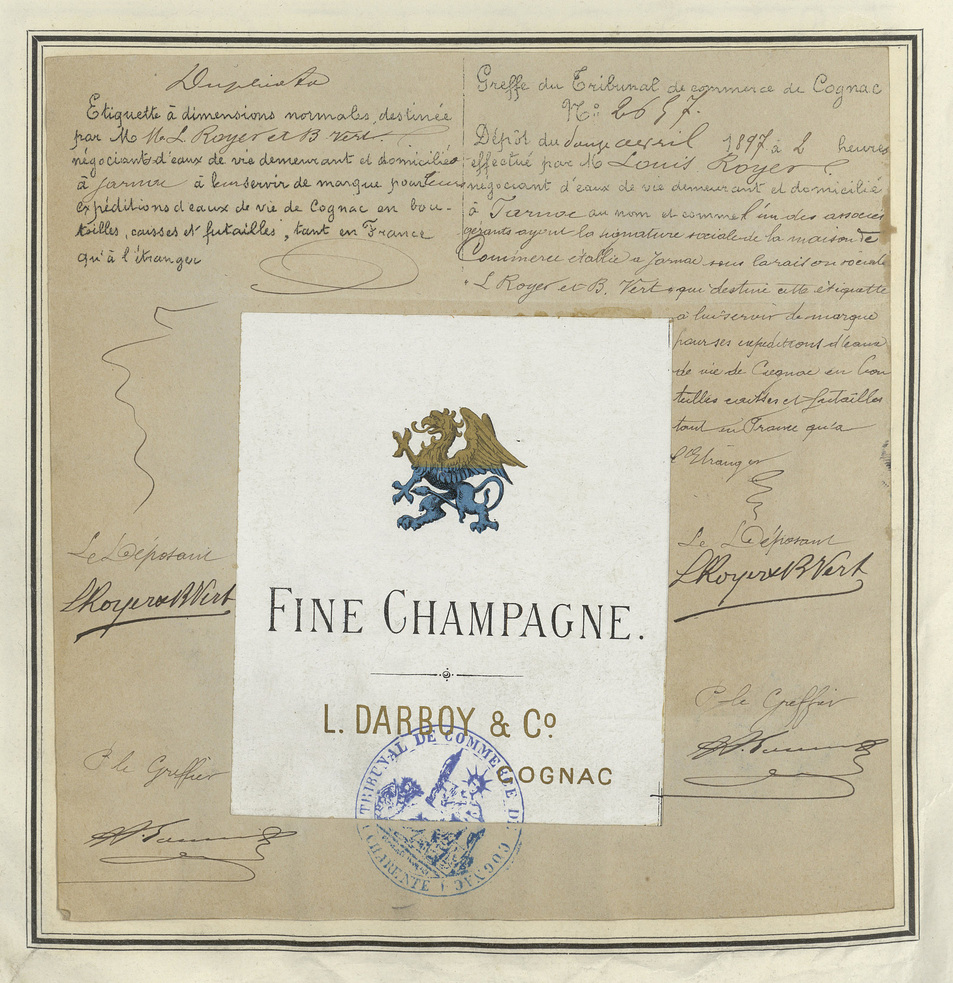 Duplicata
Etiquette à dimensions normales, destinée
par M M. L. Royer et B Vert.
négociant d'eaux de vie demeurant et domicilié
à Jarnac à leur servir de marque pour leurs
expéditions d'eaux de vie de Cognac en bou-
teilles, caisses et futailles, tant en France
qu'à l'étranger
Le Déposant
LRoyer & BVert
P. le Greffier
Greffe du Tribunal de commerce de Cognac
N°: 2657.
Dépôt du douze avril 1897 à 2 heures
effectué par M Louis Royer
négociant d'eaux de vie demeurant et domicilié
à Jarnac au nom et comme l'un des associés
gérants ayant la signature sociale de la maison de
Commerce établie a Jarnac sous la raison sociale
L Royer et B. Vert qui destine cette étiquette
à lui servir de marque
pour ses expéditions d'eaux
de vie de Cognac en bou
teilles caisses et futailles
tant en France qu'a
l'Etranger
Le Déposant
LRoyer & BVert
P. le Greffier
FINE CHAMPAGNE.
L. DARBOY & Co
COGNAC
TRIBUNAL DE COMMERCE DE COGNAC
CHARENTE